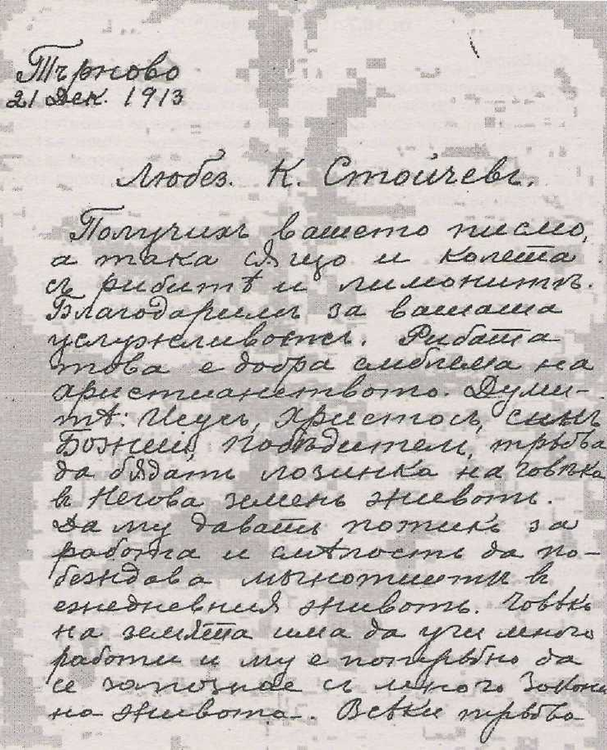 Търново
21 Дек. 1913
Любез. К. Стойчевъ.
Получихъ вашето писмо,
а така сѫщо и колета
съ рибитѣ и лимонитѣ.
Благодаримъ за вашата
услужливость. Рибата
това е добра емблема на
християнството. Думи-
тѣ: Исусъ, Христосъ, Синъ
Божий, Победителъ, трѣбва
да бѫдатъ лозинка на човѣка
въ Неговa земенъ животъ.
Да му даватъ потикъ за
работа и смѣлость да по-
беждава мъчнотиитѣ въ
ежедневния животъ. Човѣкъ
на земята има да учи много
работи и му е потрѣбно да
се запознае съ много Закони
на живота. Всѣки трѣбва